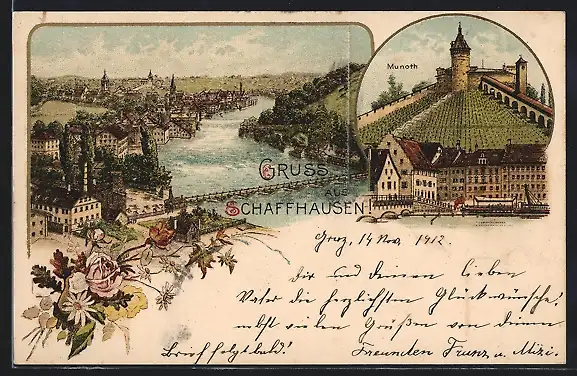 Munoth
GRUSS
AUS
SCHAFFHAUSEN
Graz, 14 Nov. 1912.
Dir und deinen lieben
Vater die herzlichsten Glückwünsche!
nebst vielen Grüßen von deinen
Brief folgt bald! Freunden Franz u. Mizi.